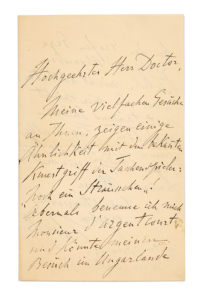 Hochgeehrter Herr Doctor,
Meine vielfachen Gesuche
an Ihnen, zeigen einige
Ähnlichkeit mit dem bekannten
Kunstgriff der Taschenspieler:
Noch ein Sträusschen!
Abermals benenne ich mich
Monsieur d'argentcourt
und könnte meinen
Besuch im Ungarlande